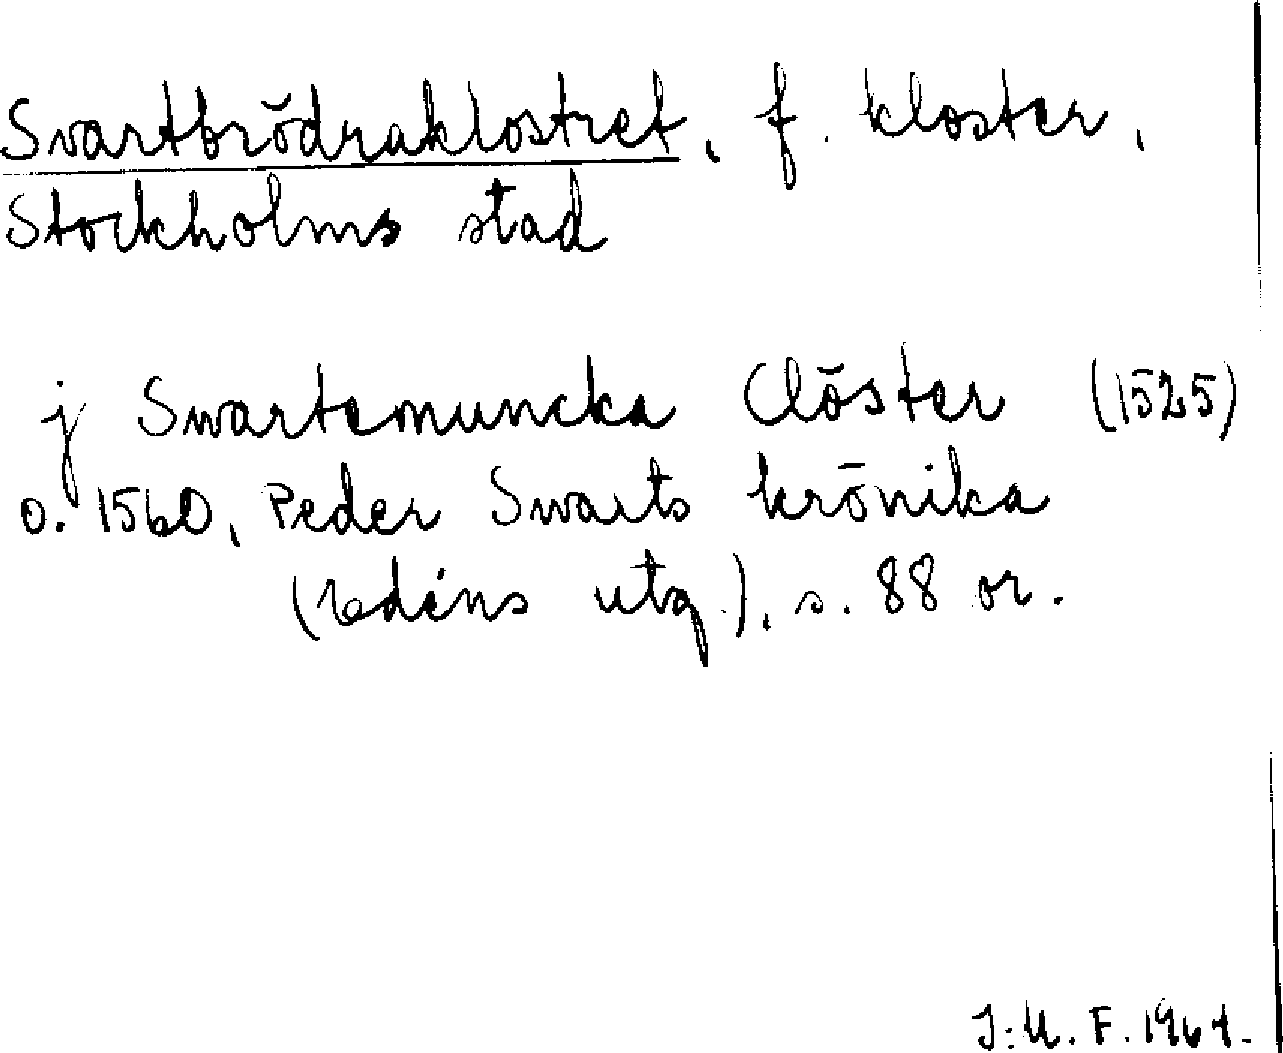 Svartbrödraklostret, f. kloster,
Stockholms stad
j Swartemuncka Clöster (1525)
o. 1560, Peder Swarts krönika
(Edéns utg.), s. 88 or.
J:U. F. 1964.